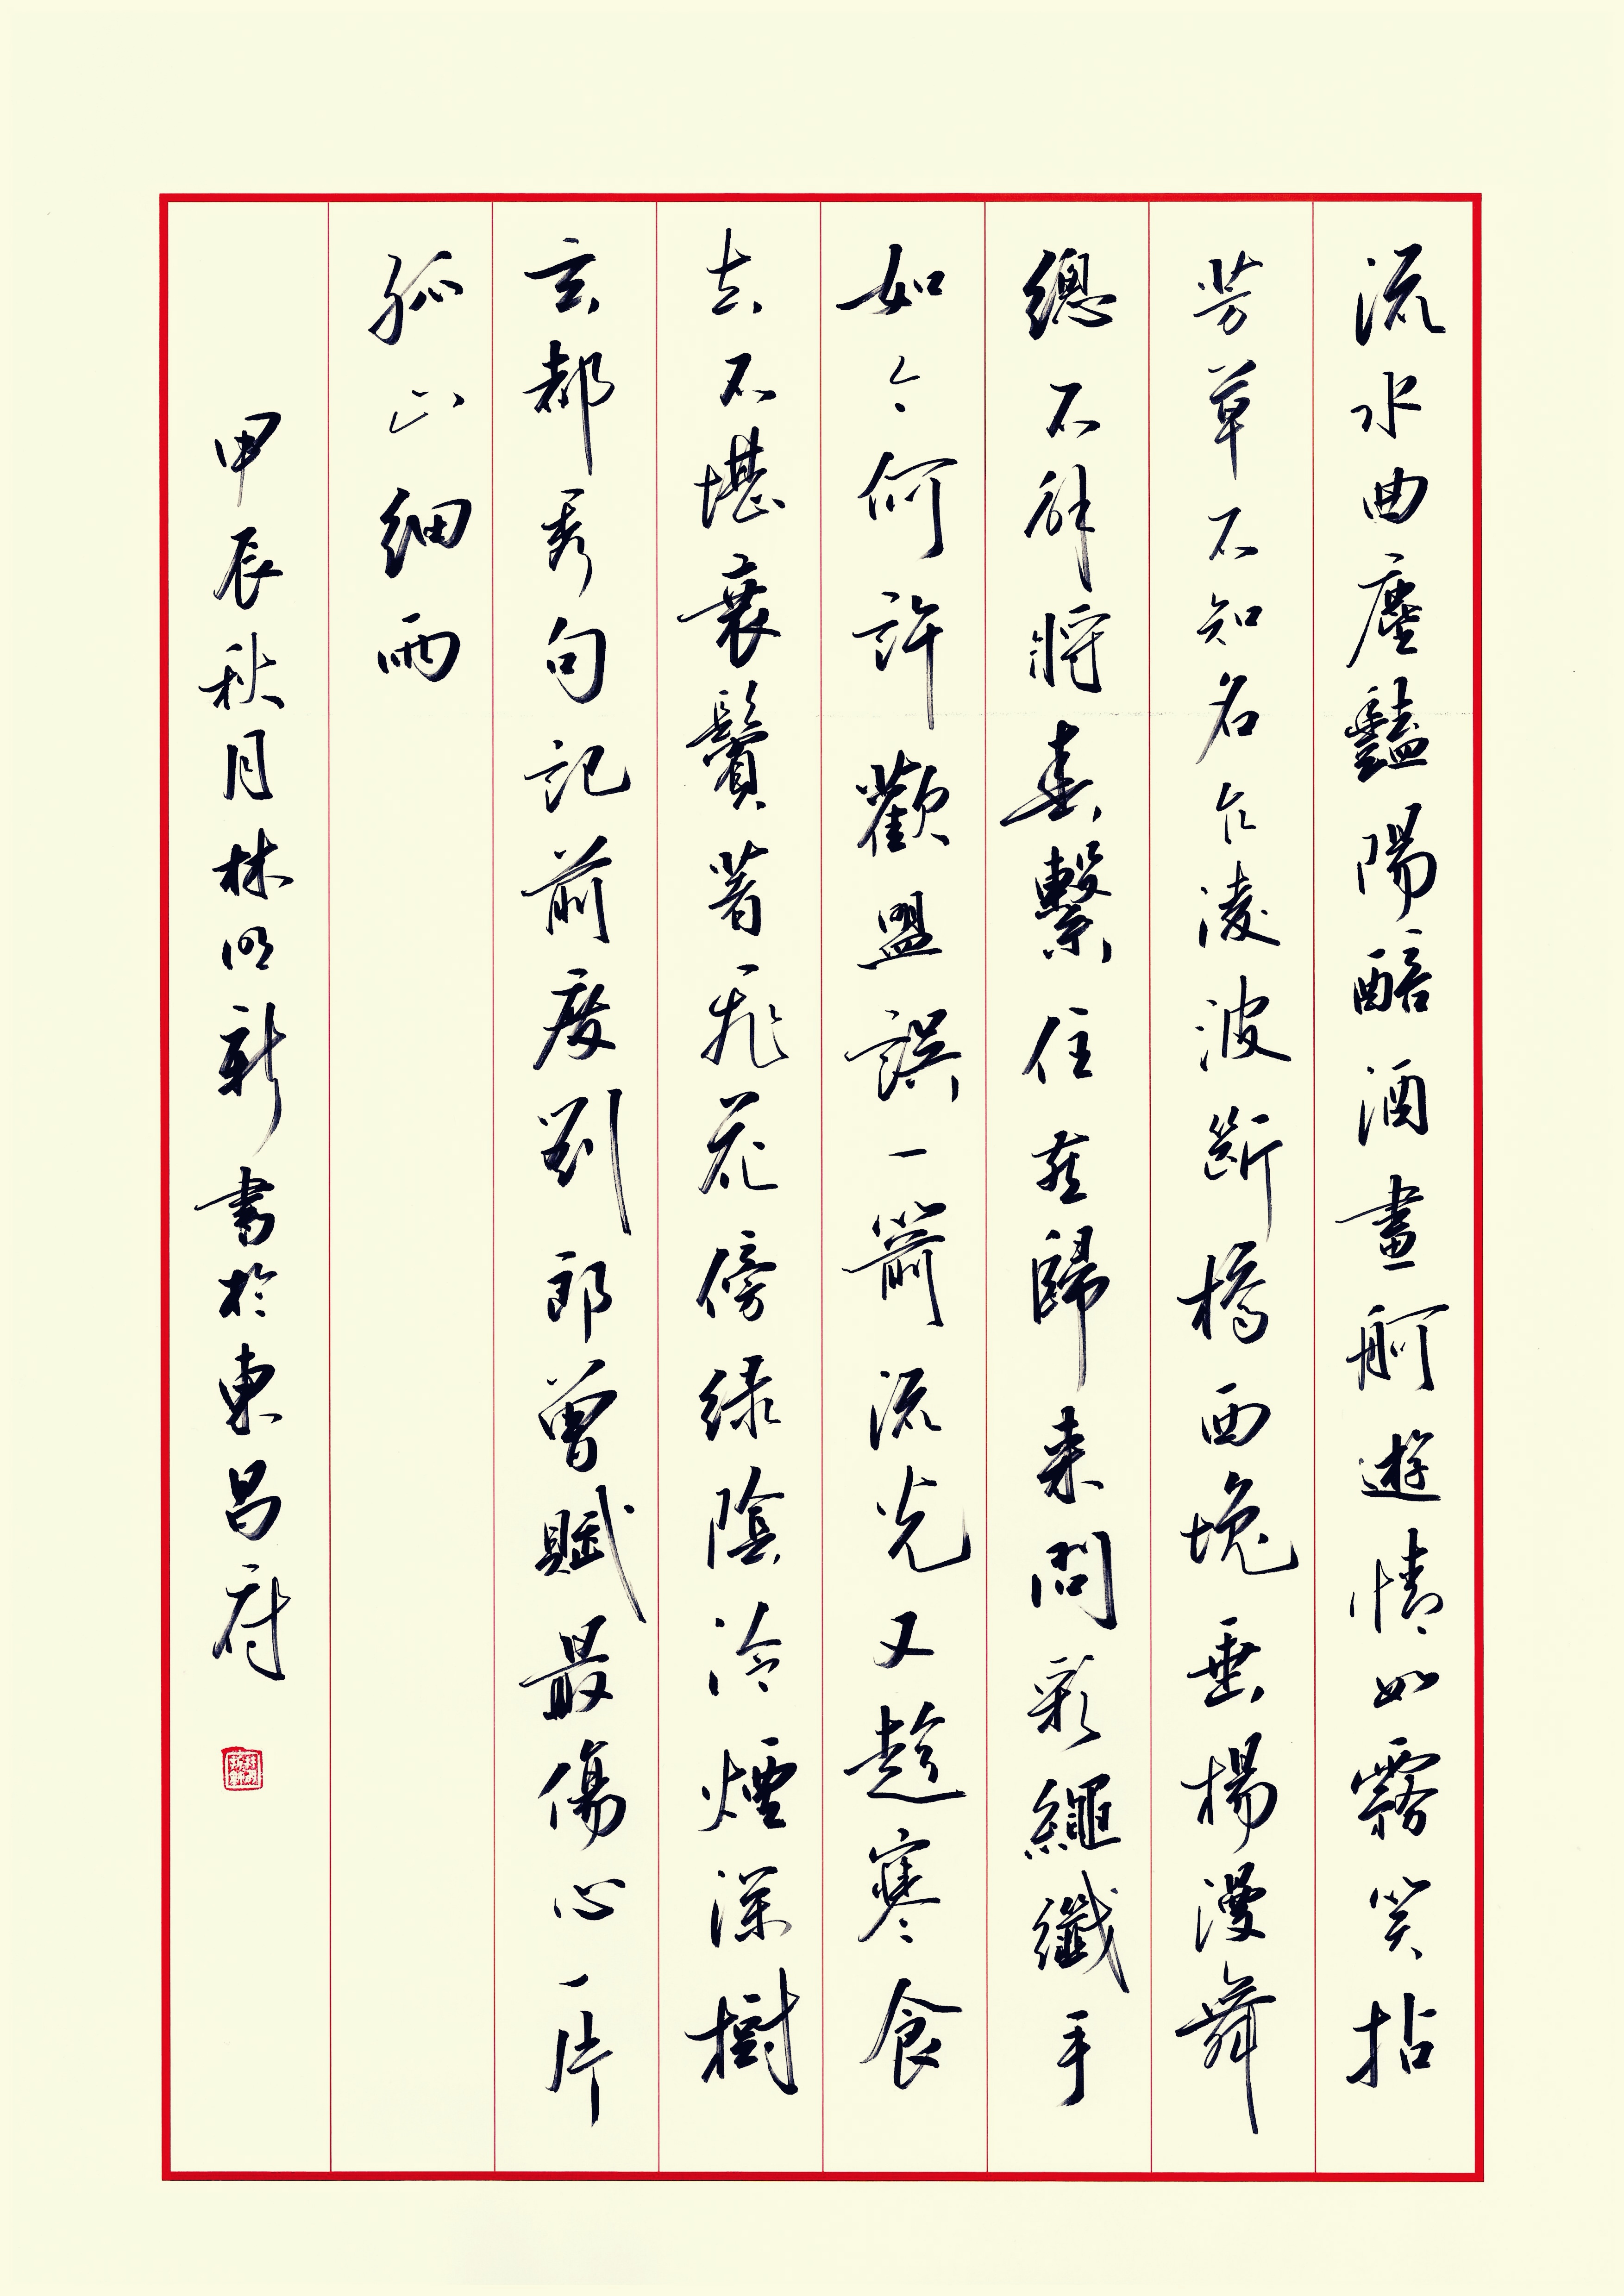 流水曲塵豔陽醅酒畫舸遊情如霧笑拈
芳草不知名乍淩波斷橋西堍垂楊漫舞
總不解將春繫住燕歸來問彩繩纖手
如今何許歡盟誤一箭流光又趁寒食
去不堪衰鬢著飛花傍綠陰冷煙深樹
玄都秀句記前度劉郎曾賦最傷心一片
孤山細雨
甲辰秋月林明新書於東昌府